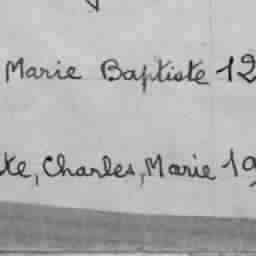 Marie Baptiste 12
te, Charles, Marie 19